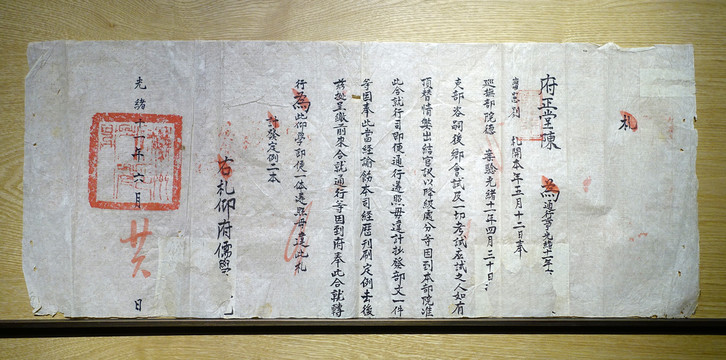 札
府正堂陳 為
札開本年五月十二日奉
巡撫部院德 案驗光緒十一年四月三十日
吏部咨嗣後鄉會試及一切考試應試之人如有
頂替情獘出結官議以降級處分等因到本部院准
此合就行司即便通行遵照毋違計抄發部文一件
等因奉此當經諭飭本司經歷刊刷定例去後
茲據呈繳前來合就通行等因到府奉此合就轉
行為此仰學即便一体遵照毋違此札
計發定例二本
右札仰府儒學
光緒十一年六月 廿六 日